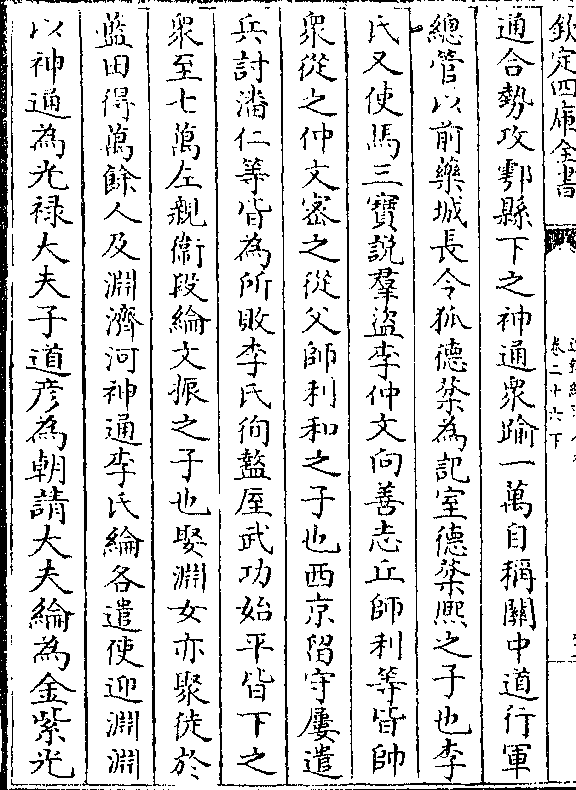 欽定四庫全書
卷二十六下
通合勢攻鄠縣下之神通衆踰一萬自稱關中道行軍
總管以前藥城長令狐德棻為記室德棻熈之子也李
氏又使馬三寶說羣盜李仲文向善志丘師利等皆帥
衆從之仲文宻之從父師利和之子也西京留守屢遣
兵討潘仁等皆為所敗李氏徇盩厔武功始平皆下之
衆至七萬左親衞段綸文振之子也娶淵女亦聚徒於
藍田得萬餘人及淵濟河神通李氏綸各遣使迎淵淵
以神通為光禄大夫子道彦為朝請大夫綸為金紫光